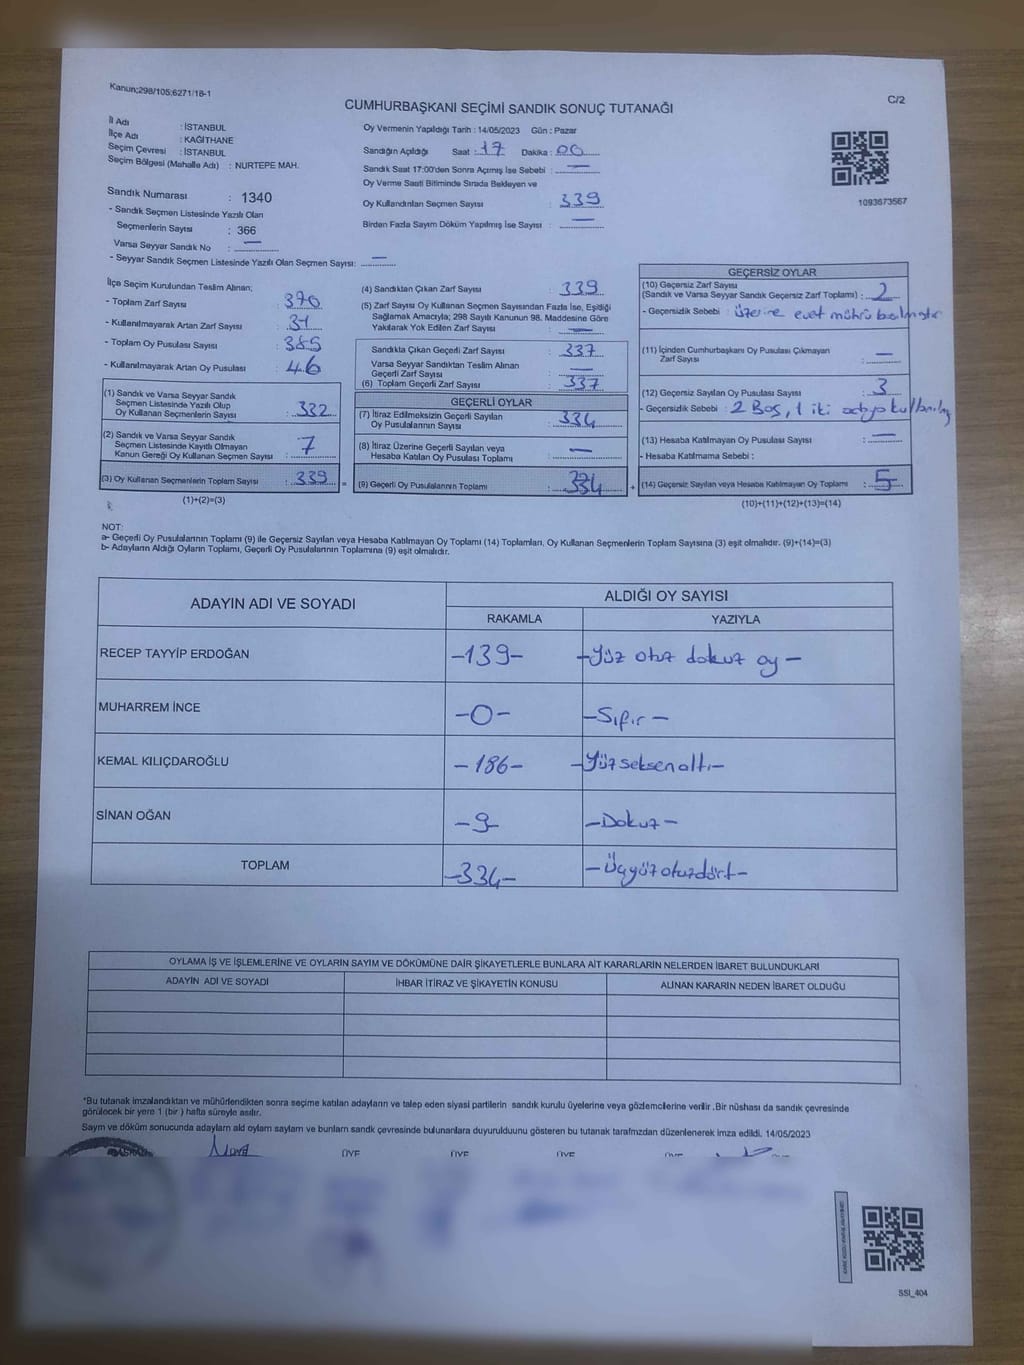 Kanun:298/105;6271/18-1
C/2
CUMHURBAŞKANI SEÇİMİ SANDIK SONUÇ TUTANAĞI
İl Adı : İSTANBUL
İlçe Adı : KAĞITHANE
Seçim Çevresi : İSTANBUL
Seçim Bölgesi (Mahalle Adı) : NURTEPE MAH.
Sandık Numarası : 1340
- Sandık Seçmen Listesinde Yazılı Olan
Seçmenlerin Sayısı : 366
Varsa Seyyar Sandık No : —
- Seyyar Sandık Seçmen Listesinde Yazılı Olan Seçmen Sayısı: —
Oy Vermenin Yapıldığı Tarih : 14/05/2023 Gün : Pazar
Sandığın Açıldığı Saat : 17 Dakika : 00
Sandık Saat 17:00'den Sonra Açılmış İse Sebebi : —
Oy Verme Saati Bitiminde Sırada Bekleyen ve
Oy Kullandırılan Seçmen Sayısı : 339
Birden Fazla Sayım Döküm Yapılmış İse Sayısı : —
1093673567
İlçe Seçim Kurulundan Teslim Alınan;
- Toplam Zarf Sayısı : 370
- Kullanılmayarak Artan Zarf Sayısı : 31
- Toplam Oy Pusulası Sayısı : 385
- Kullanılmayarak Artan Oy Pusulası : 46
(1) Sandık ve Varsa Seyyar Sandık
Seçmen Listesinde Yazılı Olup
Oy Kullanan Seçmenlerin Sayısı : 332
(2) Sandık ve Varsa Seyyar Sandık
Seçmen Listesinde Kayıtlı Olmayan
Kanun Gereği Oy Kullanan Seçmen Sayısı : 7
(3) Oy Kullanan Seçmenlerin Toplam Sayısı : 339 =
(1)+(2)=(3)
(4) Sandıktan Çıkan Zarf Sayısı : 339
(5) Zarf Sayısı Oy Kullanan Seçmen Sayısından Fazla İse, Eşitliği
Sağlamak Amacıyla; 298 Sayılı Kanunun 98. Maddesine Göre
Yakılarak Yok Edilen Zarf Sayısı : —
Sandıkta Çıkan Geçerli Zarf Sayısı : 337
Varsa Seyyar Sandıktan Teslim Alınan
Geçerli Zarf Sayısı : —
(6) Toplam Geçerli Zarf Sayısı : 337
GEÇERLİ OYLAR
(7) İtiraz Edilmeksizin Geçerli Sayılan
Oy Pusulalarının Sayısı : 334
(8) İtiraz Üzerine Geçerli Sayılan veya
Hesaba Katılan Oy Pusulası Toplamı : —
(9) Geçerli Oy Pusulalarının Toplamı : 334 +
GEÇERSİZ OYLAR
(10) Geçersiz Zarf Sayısı
(Sandık ve Varsa Seyyar Sandık Geçersiz Zarf Toplamı) : 2
- Geçersizlik Sebebi : üzerine evet mührü basılmıştır
(11) İçinden Cumhurbaşkanı Oy Pusulası Çıkmayan
Zarf Sayısı : —
(12) Geçersiz Sayılan Oy Pusulası Sayısı : 3
- Geçersizlik Sebebi : 2 Boş, 1 iki
(13) Hesaba Katılmayan Oy Pusulası Sayısı : —
- Hesaba Katılmama Sebebi :
(14) Geçersiz Sayılan veya Hesaba Katılmayan Oy Toplamı : 5
(10)+(11)+(12)+(13)=(14)
NOT:
a- Geçerli Oy Pusulalarının Toplamı (9) ile Geçersiz Sayılan veya Hesaba Katılmayan Oy Toplamı (14) Toplamları, Oy Kullanan Seçmenlerin Toplam Sayısına (3) eşit olmalıdır. (9)+(14)=(3)
b- Adayların Aldığı Oyların Toplamı, Geçerli Oy Pusulalarının Toplamına (9) eşit olmalıdır.
ADAYIN ADI VE SOYADI
ALDIĞI OY SAYISI
RAKAMLA YAZIYLA
RECEP TAYYİP ERDOĞAN -139- -Yüz otuz dokuz oy-
MUHARREM İNCE -0- -Sıfır-
KEMAL KILIÇDAROĞLU -186- -Yüz seksen altı-
SİNAN OĞAN -9- -Dokuz-
TOPLAM -334- -Üçyüz otuzdört-
OYLAMA İŞ VE İŞLEMLERİNE VE OYLARIN SAYIM VE DÖKÜMÜNE DAİR ŞİKAYETLERLE BUNLARA AİT KARARLARIN NELERDEN İBARET BULUNDUKLARI
ADAYIN ADI VE SOYADI İHBAR İTİRAZ VE ŞİKAYETİN KONUSU ALINAN KARARIN NEDEN İBARET OLDUĞU
*Bu tutanak imzalandıktan ve mühürlendikten sonra seçime katılan adayların ve talep eden siyasi partilerin sandık kurulu üyelerine veya gözlemcilerine verilir .Bir nüshası da sandık çevresinde
görülecek bir yere 1 (bir ) hafta süreyle asılır.
Sayım ve döküm sonucunda adayların ald oyların sayları ve bunların sandk çevresinde bulunanlara duyurulduunu gösteren bu tutanak tarafmzdan düzenlenerek imza edildi. 14/05/2023
BAŞKAN ÜYE ÜYE ÜYE ÜYE
SSI_404